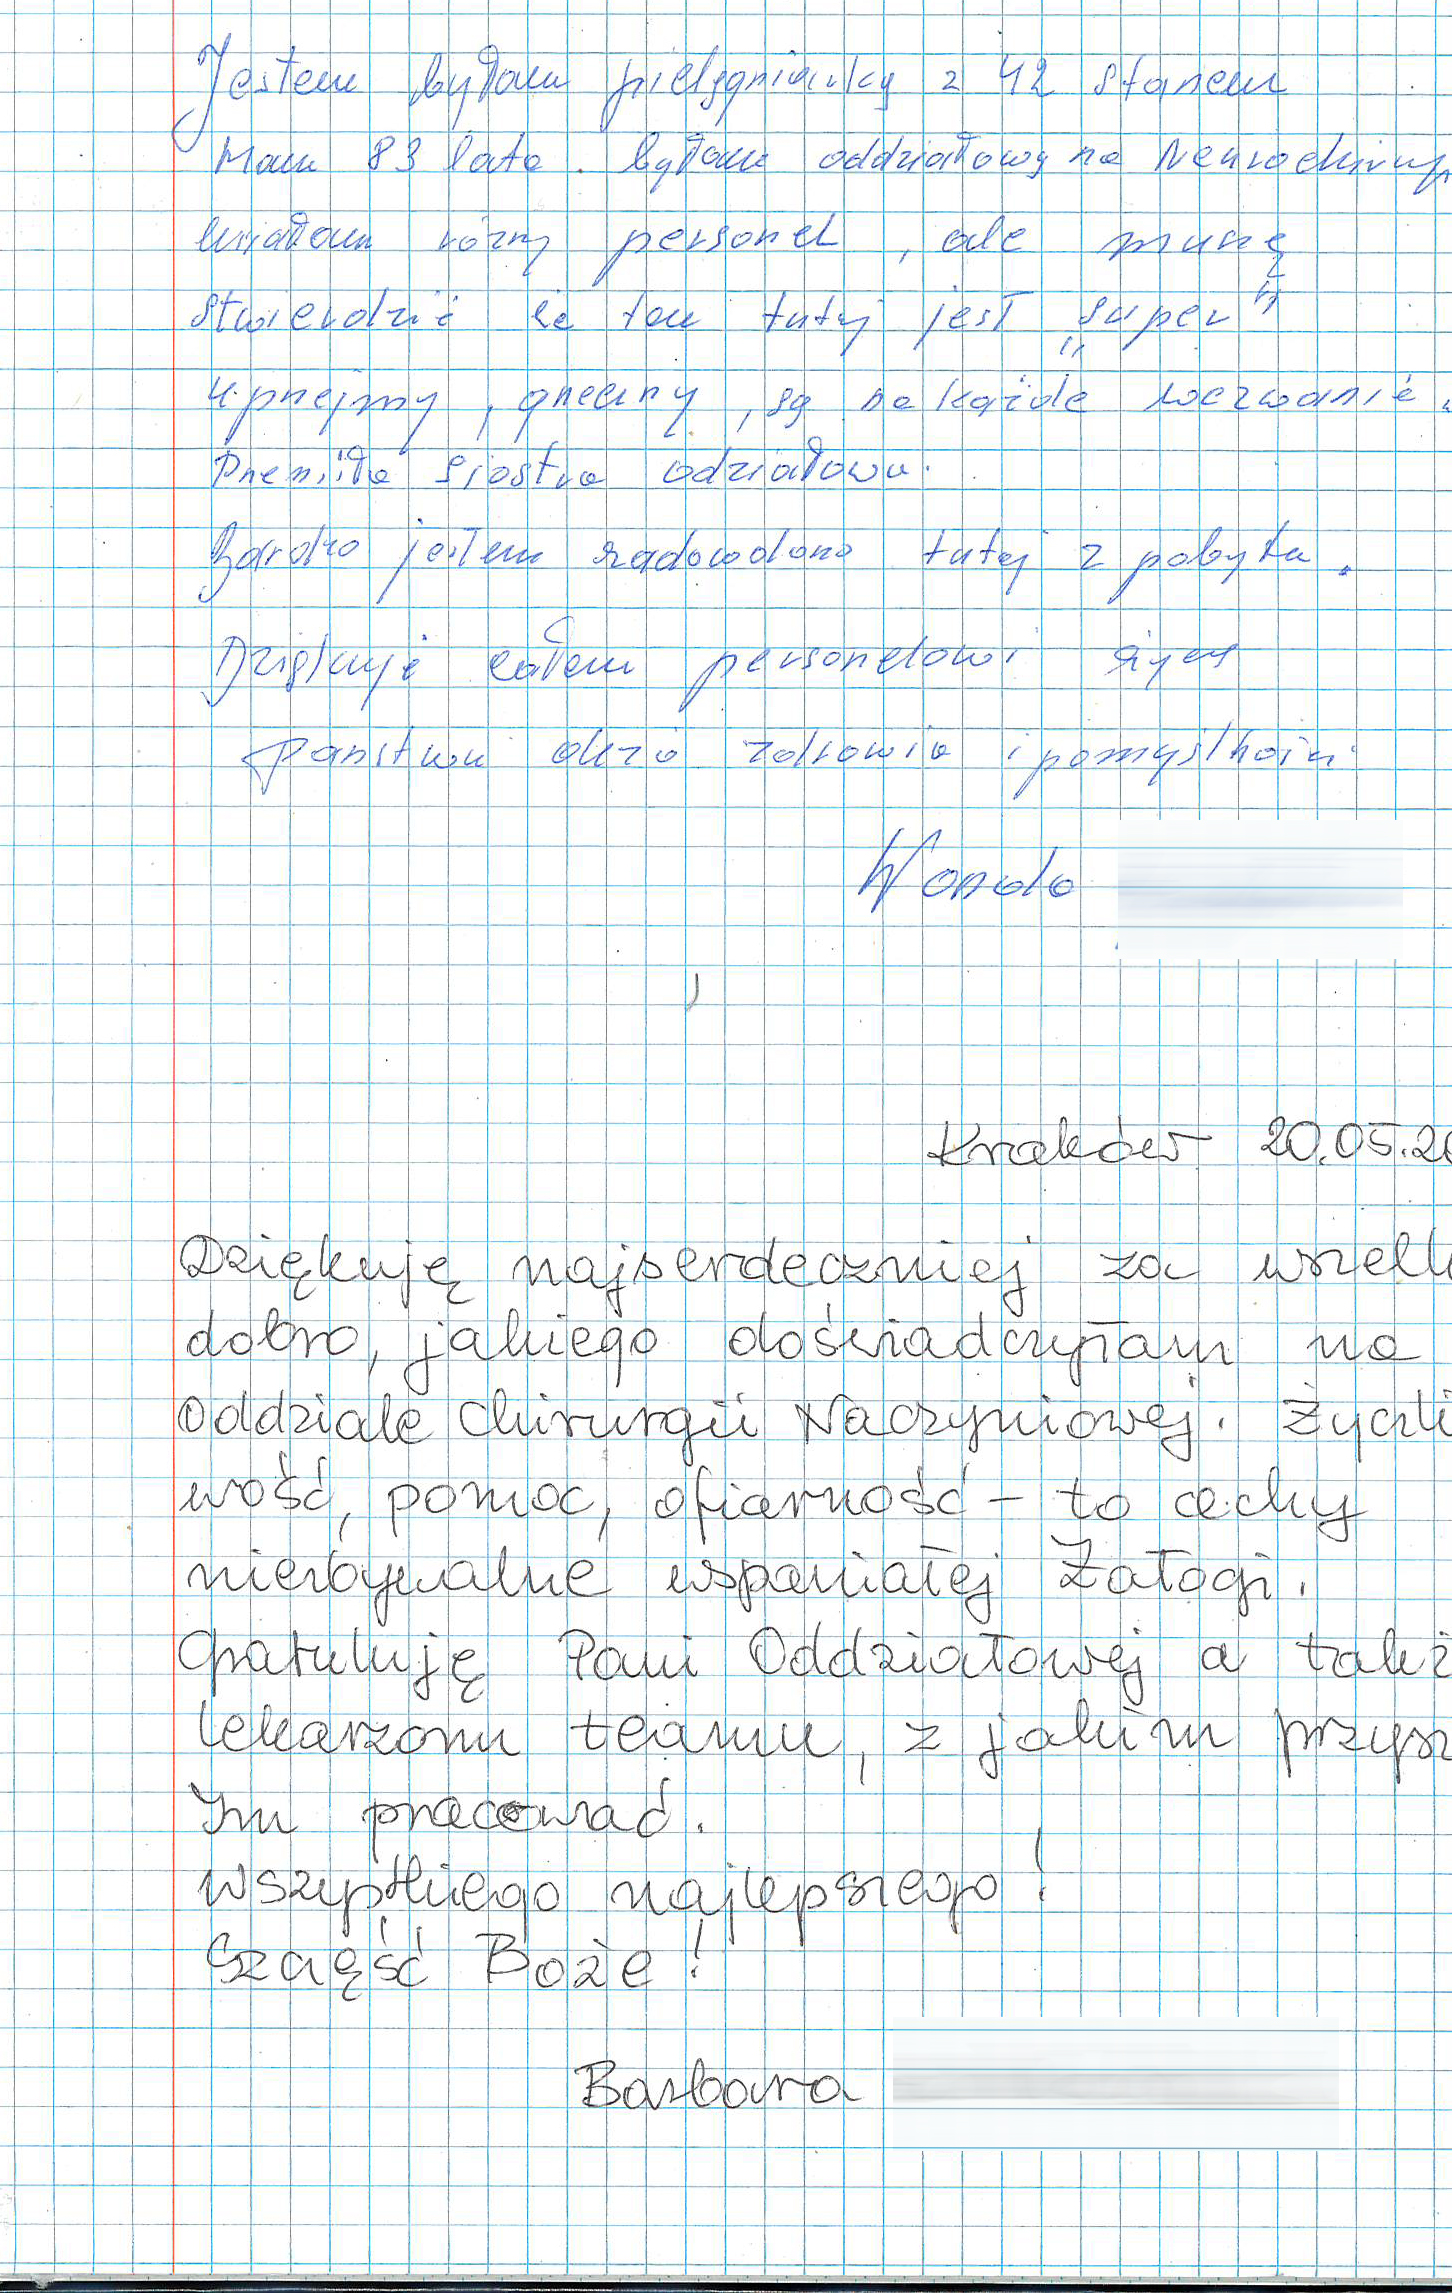 Jestem byłam pielęgniarką z 42 stażem
Mam 83 lata. byłam oddziałową na Neurochirurg
miałam różny personel, ale muszę
stwierdzić że ten tutaj jest „super"
uprzejmy, grzeczny, są na każde wezwanie.
Przemiła siostra odziałowa.
Bardzo jestem zadowolona tutaj z pobytu.
Dziękuję całem personelowi życzę
Państwu dużo zdrowia i pomyślności
Wanda
Kraków 20.05.20
Dziękuję najserdeczniej za wszelk
dobro, jakiego doświadczyłam na
Oddziale Chirurgii Naczyniowej. Życzli
wość, pomoc, ofiarność – to cechy
niezbywalne wspaniałej Załogi.
Gratuluję Pani Oddziałowej a takż
lekarzom teamu, z jakim przysz
Im pracować.
Wszystkiego najlepszego!
Szczęść Boże!
Barbara